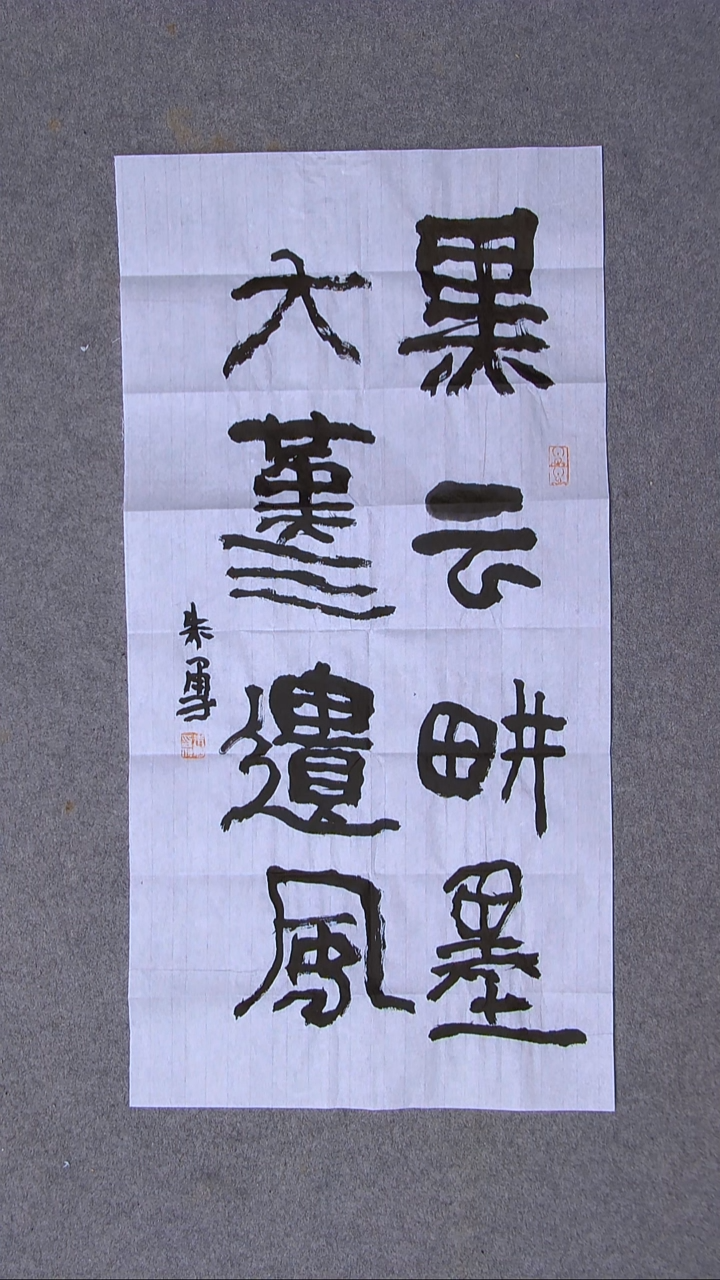 黑云畊墨
大漢遺風
朱勇